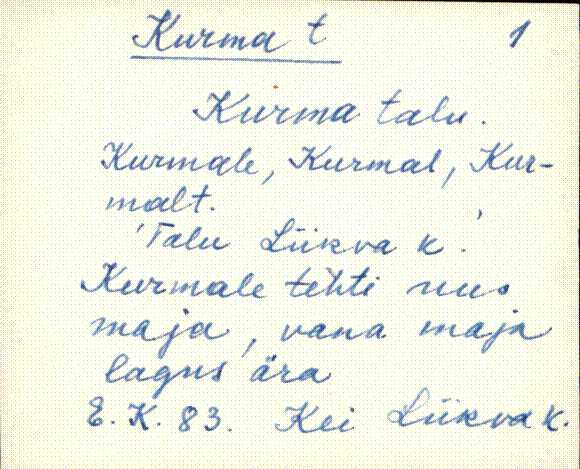 Kurma t 1
Kurma talu.
Kurmale, Kurmal, Kur-
malt.
'Talu Liikva k.'
Kurmale tehti uus
maja, vana maja
lagus ära
E. K. 83. Kei Liikva k.